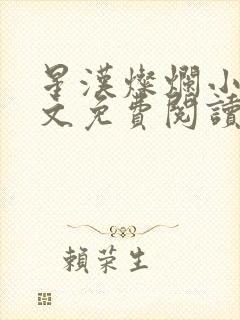 星漢燦爛小
文免費閱讀
賴荣生